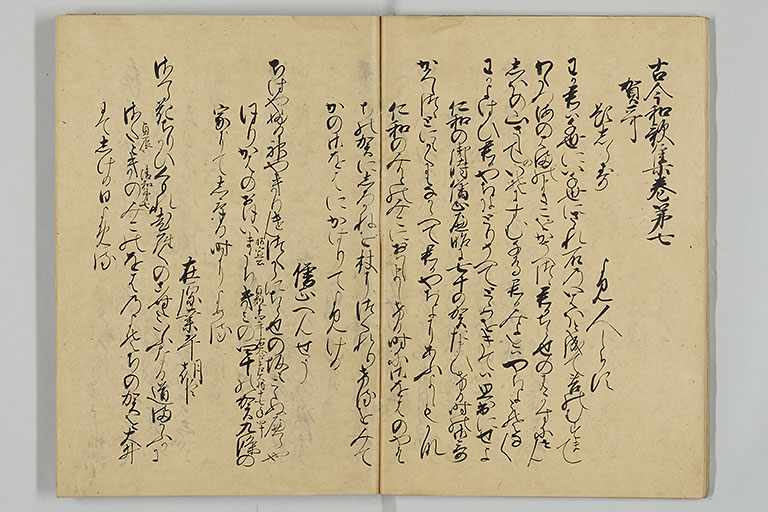 古今和歌集巻第七
賀哥
題しらす
よみ人しらす
わか君は千世にやちよにされ石のいはほと成て苔のむすまて
わたつ海の浜のまさこをかそへつゝ君か千とせのありかすにせん
しほの山さしてのいそにすむ千鳥君か御世をはやちよとそなく
わかよはひ君かやちよにとりそへてとゝめをきては思出にせよ
仁和の御時僧正遍昭に七十の賀たまひける時の御哥
かくしつゝとにもかくにもなからへて君かやちよにあふよしもかな
仁和のみこにおはしましける時に御をはのやそ
ちの賀にしろかねを杖につくれりけるをみて
かの御をはにかはりてよみける
僧正へんせう
ちはやふる神やきりけんつくからに千とせの坂もこえぬへら也
ほりかはのおほいまうちきみの四十の賀九条の
昭宣公
家にてしける時によめる
在原業平朝臣
さくら花ちりかひくもれ老らくのこむといふなる道まかふかに
さたときのみこのをはのよそちの賀を大井
貞辰 清和第七
にてしける日よめる